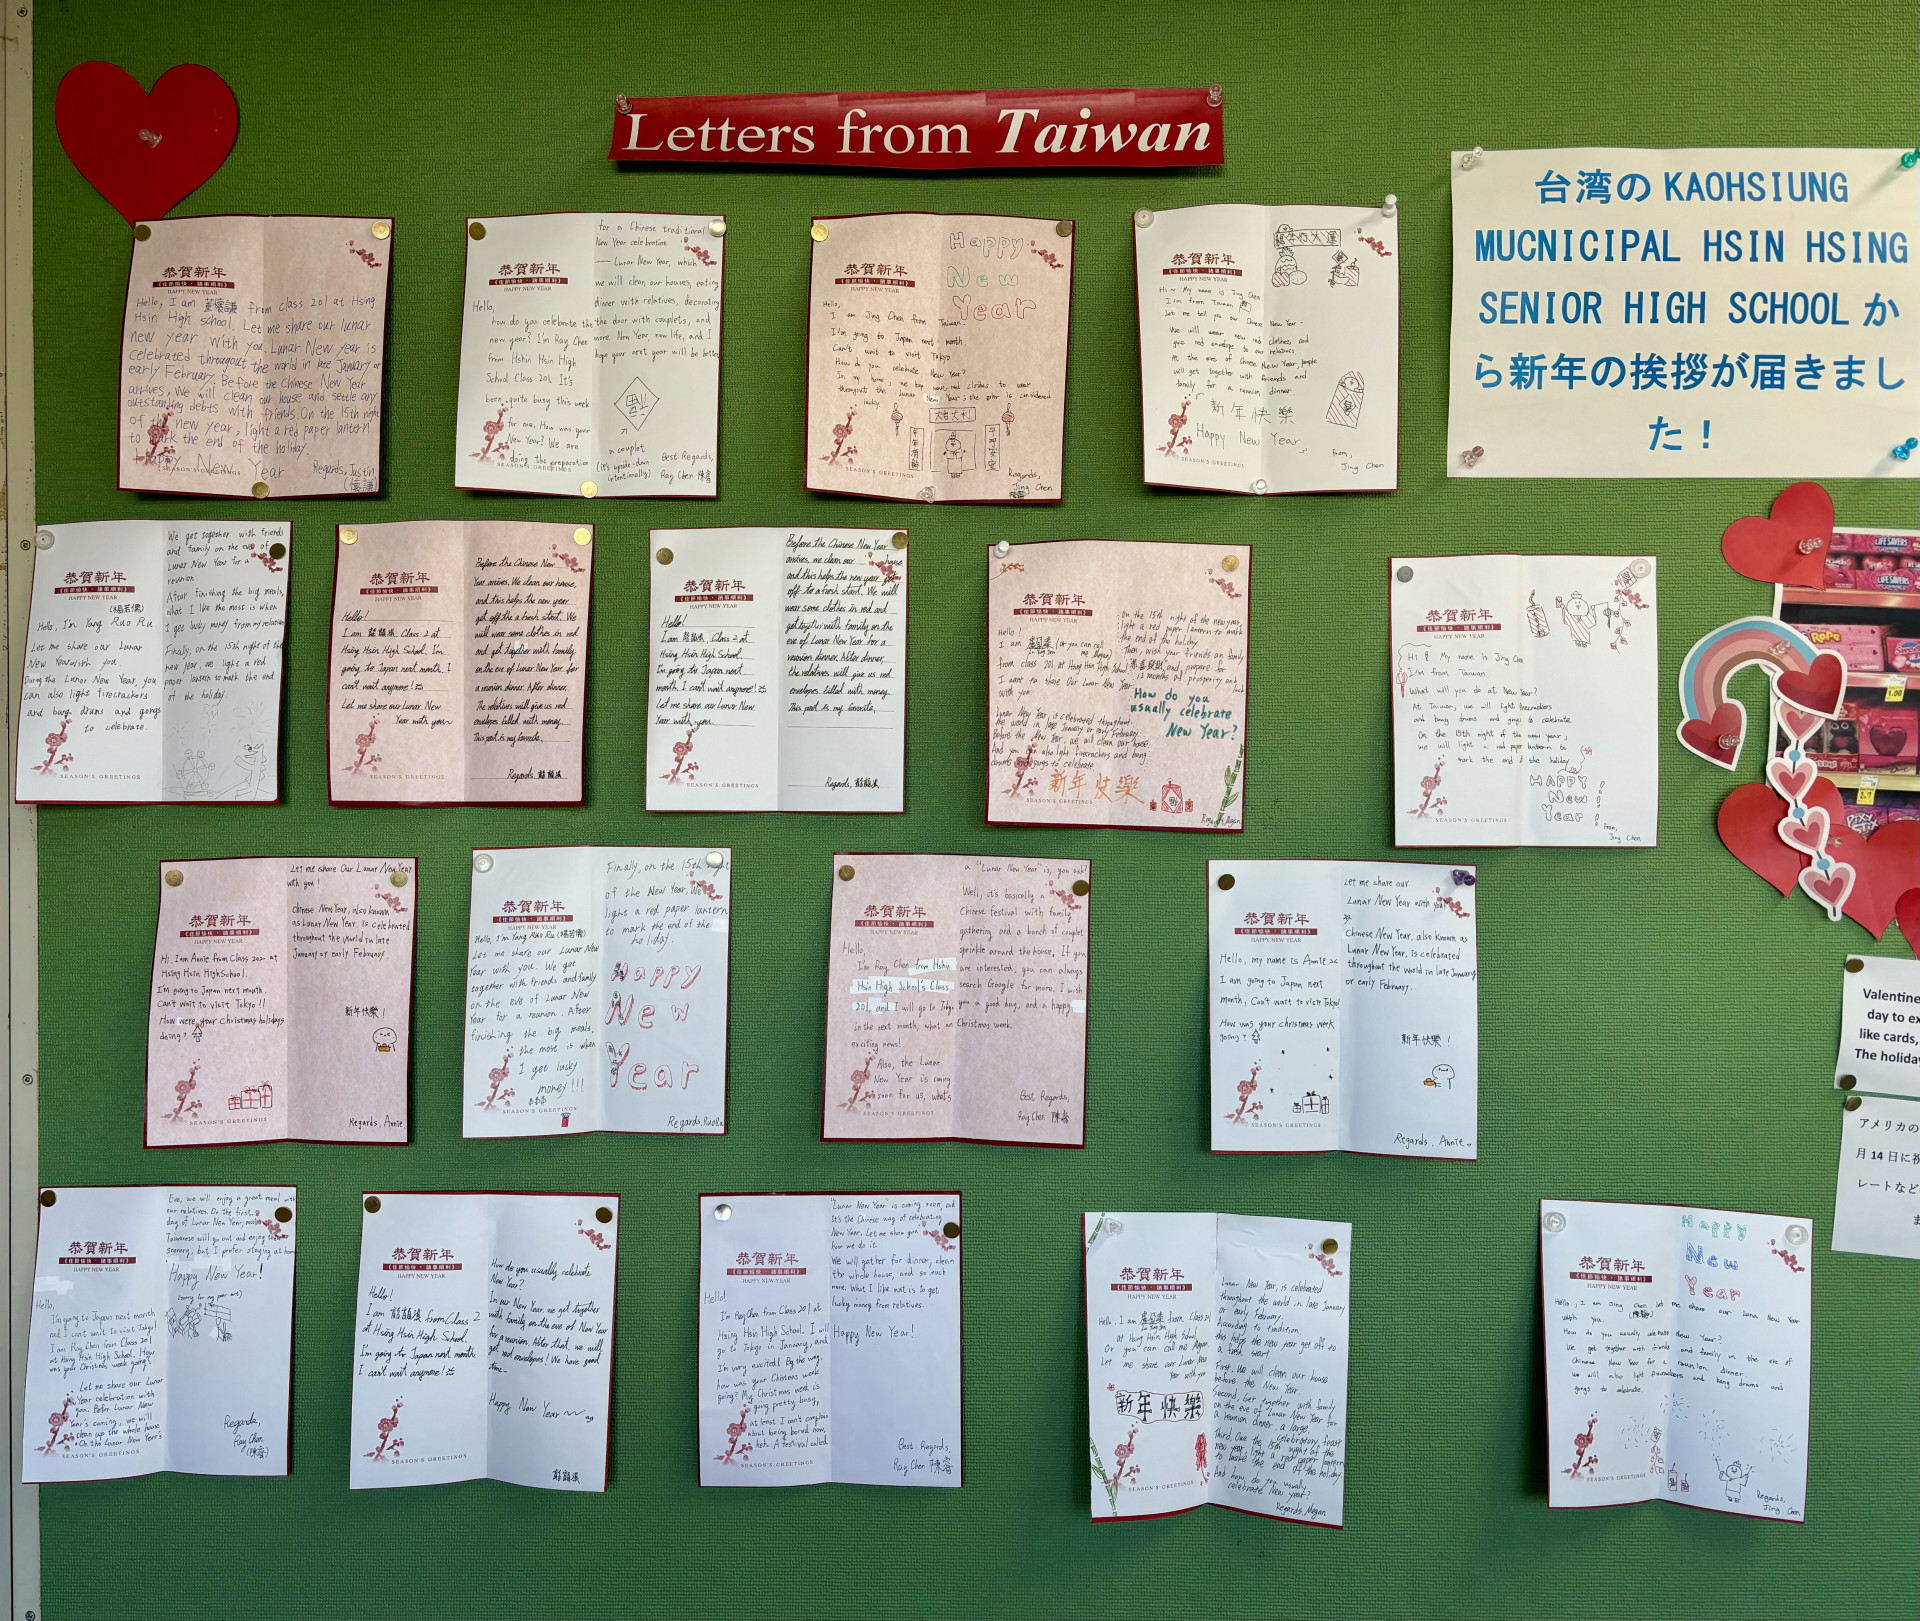 Letters from Taiwan
台湾の KAOHSIUNG
MUCNICIPAL HSIN HSING
SENIOR HIGH SCHOOL か
ら新年の挨拶が届きまし
た！
恭賀新年
《佳節愉快・諸事順利》
HAPPY NEW YEAR
Hello, I am from class 201 at Hsing
Hsin High school. Let me share our lunar
new year with you. Lunar New year is
celebrated througout the world in late January or
early February. Before the Chinese New Year
arrives, We will clean our house and settle any
outstanding debts with friends. On the 15th night
of the new year, light a red paper lantern
to mark the end of the holiday.
Happy New Year
SEASON'S GREETINGS
Regards, Justin
恭賀新年
《佳節愉快・諸事順利》
HAPPY NEW YEAR
Hello,
how do you celebrate the
new year? I'm Ray Chen
from Hshin Hsin High
School Class 201. It's
been quite busy this week
for me. How was your
New Year? We are
doing the preparation
SEASON'S GREETINGS
for a Chinese traditional
New Year celebration
— Lunar New Year, which
we will clean our houses, eating
dinner with relatives, decorating
the door with couplets, and
more. New Year, new life, and I
hope your next year will be better
福
a couplet
(it's upside-down
intentionally)
Best Regards,
Ray Chen 陳睿
恭賀新年
《佳節愉快・諸事順利》
HAPPY NEW YEAR
Happy
New
Year
Hello,
I am Jing Chen from Taiwan.
I'm going to Japan next month.
Can't wait to visit Tokyo
How do you celebrate New Year?
In my home, we buy new, red clothes to wear
throughout the lunar New Year; the color is considered
lucky.
大吉大利
平安
SEASON'S GREETINGS
Regards,
Jing Chen
恭賀新年
《佳節愉快・諸事順利》
HAPPY NEW YEAR
Hi ~ My name is Jing Chen
I'm from Taiwan
Let me tell you our Chinese New Year~
We will wear new red clothes and
give red envelope to our relatives
At the eve of Chinese New Year, people
will get together with friends and
family for a reunion dinner
新年快樂
Happy New Year
SEASON'S GREETINGS
From,
Jing Chen
恭賀新年
《佳節愉快・諸事順利》
HAPPY NEW YEAR
(楊若儒)
Hello, I'm Yang Ruo Ru
Let me share our Lunar
New Year with you.
During the Lunar New Year, you
can also light firecrackers
and bang drums and gongs
to celebrate.
SEASON'S GREETINGS
We get together with friends
and family on the eve of
Lunar New Year for a
reunion.
After finishing the big meals,
what I like the most is when
I get lucky money from my relatives
Finally, on the 15th night of the
new year, we light a red
paper lantern to mark the end
of the holiday
恭賀新年
《佳節愉快・諸事順利》
HAPPY NEW YEAR
Hello!
I am Class 2 at
Hsing Hsin High School. I'm
going to Japan next month. I
can't wait anymore!
Let me share our Lunar New
Year with you~
SEASON'S GREETINGS
Before the Chinese New
Year arrives. We clean our house,
and this helps the new year
get off the a fresh start. We
will wear some clothes in red
and get together with family
on the eve of Lunar New Year for
a reunion dinner. After dinner,
The relatives will give us red
envelopes filled with money.
This part is my favorite.
Regards,
恭賀新年
《佳節愉快・諸事順利》
HAPPY NEW YEAR
Hello!
I am Class 2 at
Hsing Hsin High School.
I'm going to Japan next
month. I can't wait anymore!
Let me share our Lunar New
Year with you.
SEASON'S GREETINGS
Before the Chinese New Year
arrives, we clean our house,
and this helps the new year get
off to a fresh start. We will
wear some clothes in red and
get together with family on the
eve of Lunar New Year for a
reunion dinner. After dinner,
the relatives will give us red
envelopes filled with money.
This part is my favorite.
Regards,
恭賀新年
《佳節愉快・諸事順利》
HAPPY NEW YEAR
Hello!
I am (or you can call
me Megan)
from class 201 at Hsing Hsin High School
I want to share Our Lunar New Year
with you.
Lunar New Year, is celebrated throughout
the world in late January or early February.
Before the New Year, we will clean our house.
And you can also light firecrackers and bang
drums and gongs to celebrate
新年快樂
SEASON'S GREETINGS
On the 15th night of the new year,
light a red paper lantern to mark
the end of the holiday
Then, wish your friends an family
恭喜發財 and prepare for
12 months of prosperity and
luck
How do you
usually celebrate
New Year?
Regards, Megan
恭賀新年
《佳節愉快・諸事順利》
HAPPY NEW YEAR
Hi! My name is Jing Chen
I'm from Taiwan
What will you do at New Year?
At Taiwan, we will light firecrackers
and bang drums and gongs to celebrate.
On the 15th night of the new year,
we will light a red paper lantern to
mark the end of the holiday
HAPPY
New
Year!
SEASON'S GREETINGS
From,
Jing Chen
恭賀新年
《佳節愉快・諸事順利》
HAPPY NEW YEAR
Hi, I am Annie from Class 202 at
Hsing Hsin High School.
I'm going to Japan next month.
Can't wait to visit Tokyo!!
How were your Christmas holidays
doing?
SEASON'S GREETINGS
Let me share Our Lunar New Year
with you!
Chinese New Year, also known
as Lunar New Year, is celebrated
throughout the world in late
January or early February
新年快樂！
Regards, Annie
恭賀新年
《佳節愉快・諸事順利》
HAPPY NEW YEAR
Hello, I'm Yang Ruo Ru (楊若儒)
Let me share our Lunar New
Year with you. We get
together with friends and family
on the eve of Lunar New
Year for a reunion. After
finishing the big meals,
the most is when
I get lucky
money!!!
SEASON'S GREETINGS
Finally, on the 15th night
of the New Year, We
light a red paper lantern
to mark the end of the
holiday.
Happy
New
Year
Regards, RuoRu
恭賀新年
《佳節愉快・諸事順利》
HAPPY NEW YEAR
Hello,
I'm Ray Chen from Hshin
Hsin High School's Class
201, and I will go to Tokyo
in the next month, what an
exciting news!
Also, the Lunar
New Year is coming
soon for us, what's
SEASON'S GREETINGS
a "Lunar New Year" is, you ask?
Well, it's basically a
Chinese festival with family
gathering and a bunch of couplet
sprinkle around the house, If you
are interested, you can always
search Google for more. I wish
you a good day, and a happy
Christmas week.
Best Regards,
Ray Chen 陳睿
恭賀新年
《佳節愉快・諸事順利》
HAPPY NEW YEAR
Hello, my name is Annie
I am going to Japan next
month, Can't wait to visit Tokyo!
How was your christmas week
going?
SEASON'S GREETINGS
Let me share our
Lunar New Year with you
Chinese New Year, also known as
Lunar New Year, is celebrated
throughout the world in late January
or early February.
新年快樂！
Regards, Annie
恭賀新年
《佳節愉快・諸事順利》
HAPPY NEW YEAR
Hello,
I'm going to Japan next month
and I can't wait to visit Tokyo!
I am Ray Chen from Class 201
at Hsing Hsin High School. How
was your Christmas week going?
Let me share our Lunar
Year celebration with
you. Before Lunar New
Year's coming, we will
clean up the whole house
On the Lunar New Year's
Eve, we will enjoy a great meal with
our relatives. On the first
day of Lunar New Year, most
Taiwanese will go out and enjoy the
scenery, but I prefer staying at home
Happy New Year!
(sorry for my poor art)
Regards,
Ray Chen
(陳睿)
恭賀新年
《佳節愉快・諸事順利》
HAPPY NEW YEAR
Hello!
I am from Class 2
at Hsing Hsin High School.
I'm going to Japan next month
I can't wait anymore!
SEASON'S GREETINGS
How do you usually celebrate
New Year?
In our New Year, we get together
with family on the eve of New Year
for a reunion. After that, we will
get red envelopes! We have good
time~
Happy New Year ~~
恭賀新年
《佳節愉快・諸事順利》
HAPPY NEW YEAR
Hello!
I'm Ray Chen from Class 201 at
Hsing Hsin High School. I will
go to Tokyo in January, and
I'm very excited! By the way,
how was your Christmas week
going? My Christmas week is
going pretty busy,
at least I can't complain
about being bored now,
heh. A festival called
SEASON'S GREETINGS
"Lunar New Year" is coming soon, and
It's the Chinese way of celebrating
New Year. Let me show you
how we do it.
We will gather for dinner, clean
the whole house, and so much
more. What I like most is to get
lucky money from relatives.
Happy New Year!
Best Regards,
Ray Chen 陳睿
恭賀新年
《佳節愉快・諸事順利》
HAPPY NEW YEAR
Hello, I am from Class 201
at Hsing Hsin High School
Or you can call me Megan
Let me share our Lunar New
Year with you
新年快樂
SEASON'S GREETINGS
Lunar New Year, is celebrated
throughout the world in late January
or early February.
According to tradition,
this helps the new year get off to
a fresh start
First, We will clean our house
before the New Year
Second, Get together with family
on the eve of Lunar New Year for
a reunion dinner, a large,
Third, One the celebratory feast
new year, light a red paper lantern
to leave the end of the holiday.
And how do you usually
celebrate New year?
Regards, Megan
恭賀新年
《佳節愉快・諸事順利》
HAPPY NEW YEAR
Happy
New
Year
Hello, I am Jing Chen, let me share our Luna New Year
with you.
How do you usually celebrate New Year?
We get together with friends and family on the eve of
Chinese New Year for a reunion dinner.
We will also light firecrackers and bang drums and
gongs to celebrate
SEASON'S GREETINGS
Regards,
Jing Chen
LIFE SAVERS
LIFE SAVERS
Rope
1.00
Valentine
day to ex
like cards,
The holiday
アメリカの
月 14 日に祝
レートなど
ま